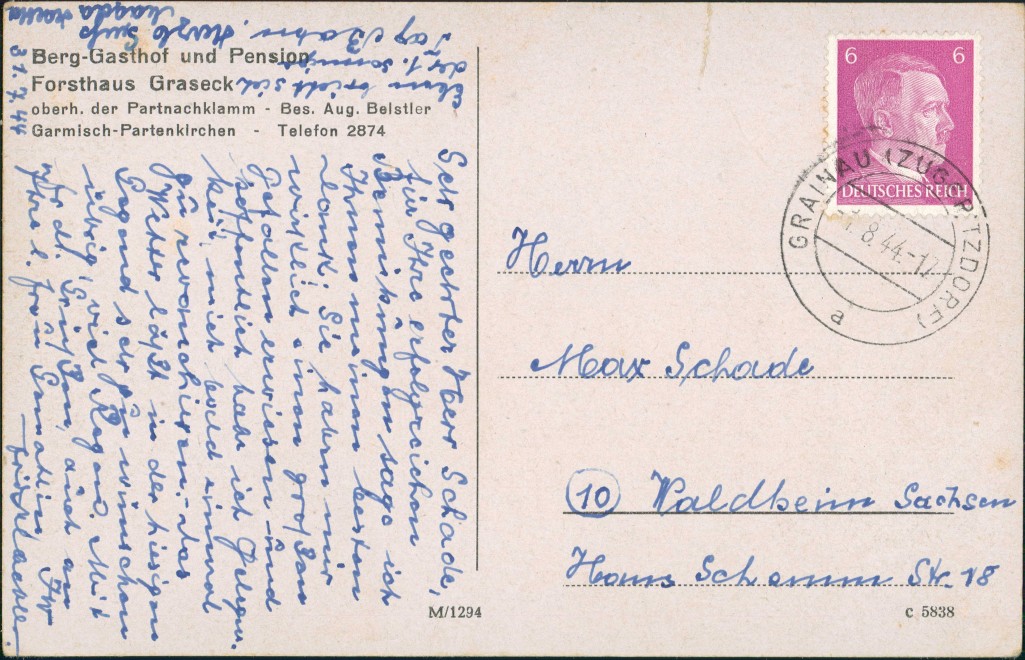 Berg-Gasthof und Pension
Forsthaus Graseck
oberh. der Partnachklamm - Bes. Aug. Beistler
Garmisch-Partenkirchen - Telefon 2874
31.7.44
Sehr geehrter Herr Schade,
für Ihre erfolgreichen
Bemühungen sage ich
Ihnen meinen besten
Dank; Sie haben mir
wirklich einen großen
Gefallen erwiesen und
hoffentlich habe ich Gelegen-
heit, mich bald einmal
zu revanchieren. - Das
Wetter läßt in der hiesigen
Gegend sehr zu wünschen
übrig, viel Regen. Mit
Grüßen, auch an
Ihre l. Frau Gemahlin Ihr
Eben bricht sich
der 1. sonnige
Tag Bahn. Herzl. Gruß
Magda
6 6
DEUTSCHES REICH
GRAINAU (ZUGSPITZDORF)
8.44-12
a
Herrn
Max Schade
(10) Waldheim Sachsen
Hans Schemm Str. 18
M/1294
c 5838